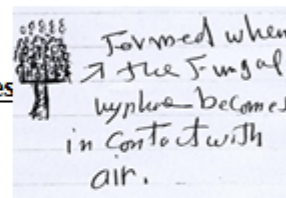 Formed when
es
the Fungal
hyphae becomes
in Contact with
air.